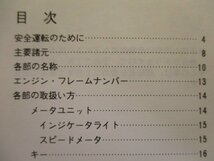 目次
安全運転のために 4
主要諸元 8
各部の名称 10
エンジン・フレームナンバー 13
各部の取扱い方 14
メータユニット 14
インジケータライト 15
スピードメータ 15
キー 16